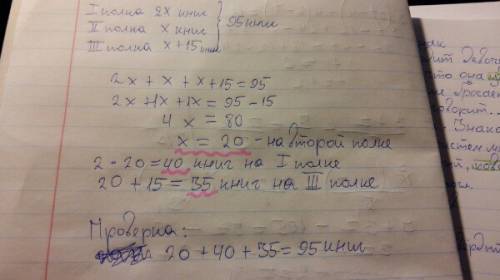 I полка 2х книг
II полка х книг } 95 книг
III полка х+15 книг
2х + х + х + 15 = 95
2х + 1х + 1х = 95 - 15
4 х = 80
х = 20 - на второй полке
2 · 20 = 40 книг на I полке
20 + 15 = 35 книг на III полке
Проверка:
20 + 40 + 35 = 95 книг